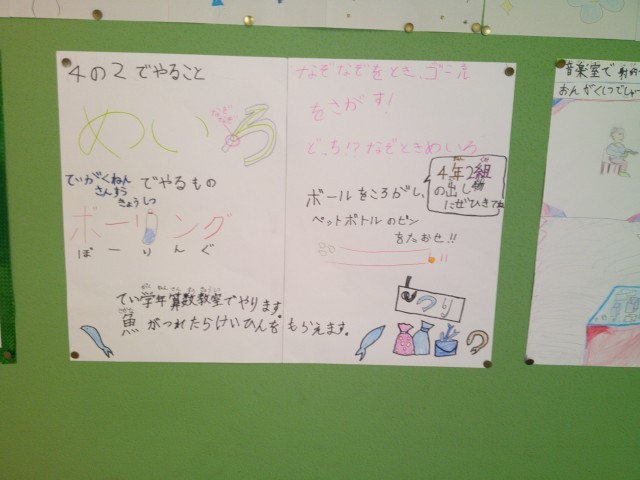 4の2でやること
めいろ
なぞなぞ
ていがくねん
さんすう
きょうしつ
でやるもの
ボーリング
ぼーりんぐ
てい学年算数教室でやります。
魚がつれたらけいひんをもらえます。
なぞなぞをとき、ゴール
をさがす!
どっち!?なぞときめいろ
4年2組
の出し物
にぜひきてね
ボールをころがし、
ペットボトルのピン
をたおせ!!
つり
音楽室で射的
おんがくしつでしゃ